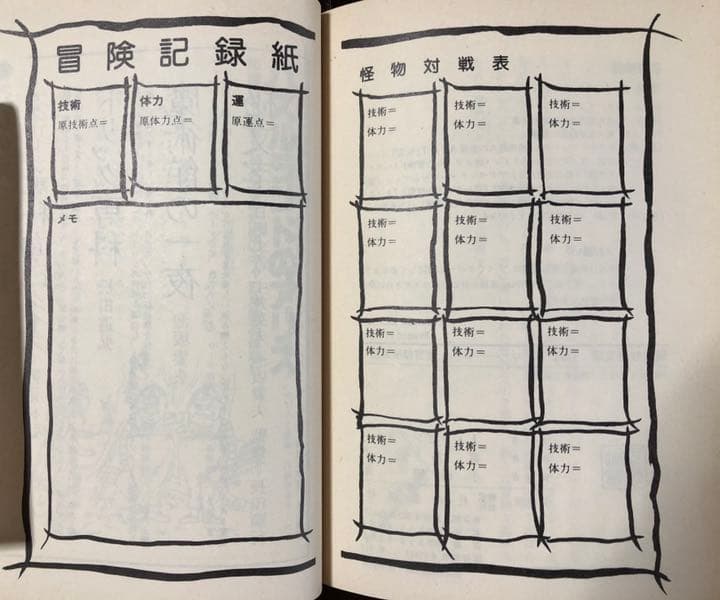 冒険記録紙
技術
原技術点＝
体力
原体力点＝
運
原運点＝
メモ
怪物対戦表
技術＝
体力＝
技術＝
体力＝
技術＝
体力＝
技術＝
体力＝
技術＝
体力＝
技術＝
体力＝
技術＝
体力＝
技術＝
体力＝
技術＝
体力＝
技術＝
体力＝
技術＝
体力＝
技術＝
体力＝